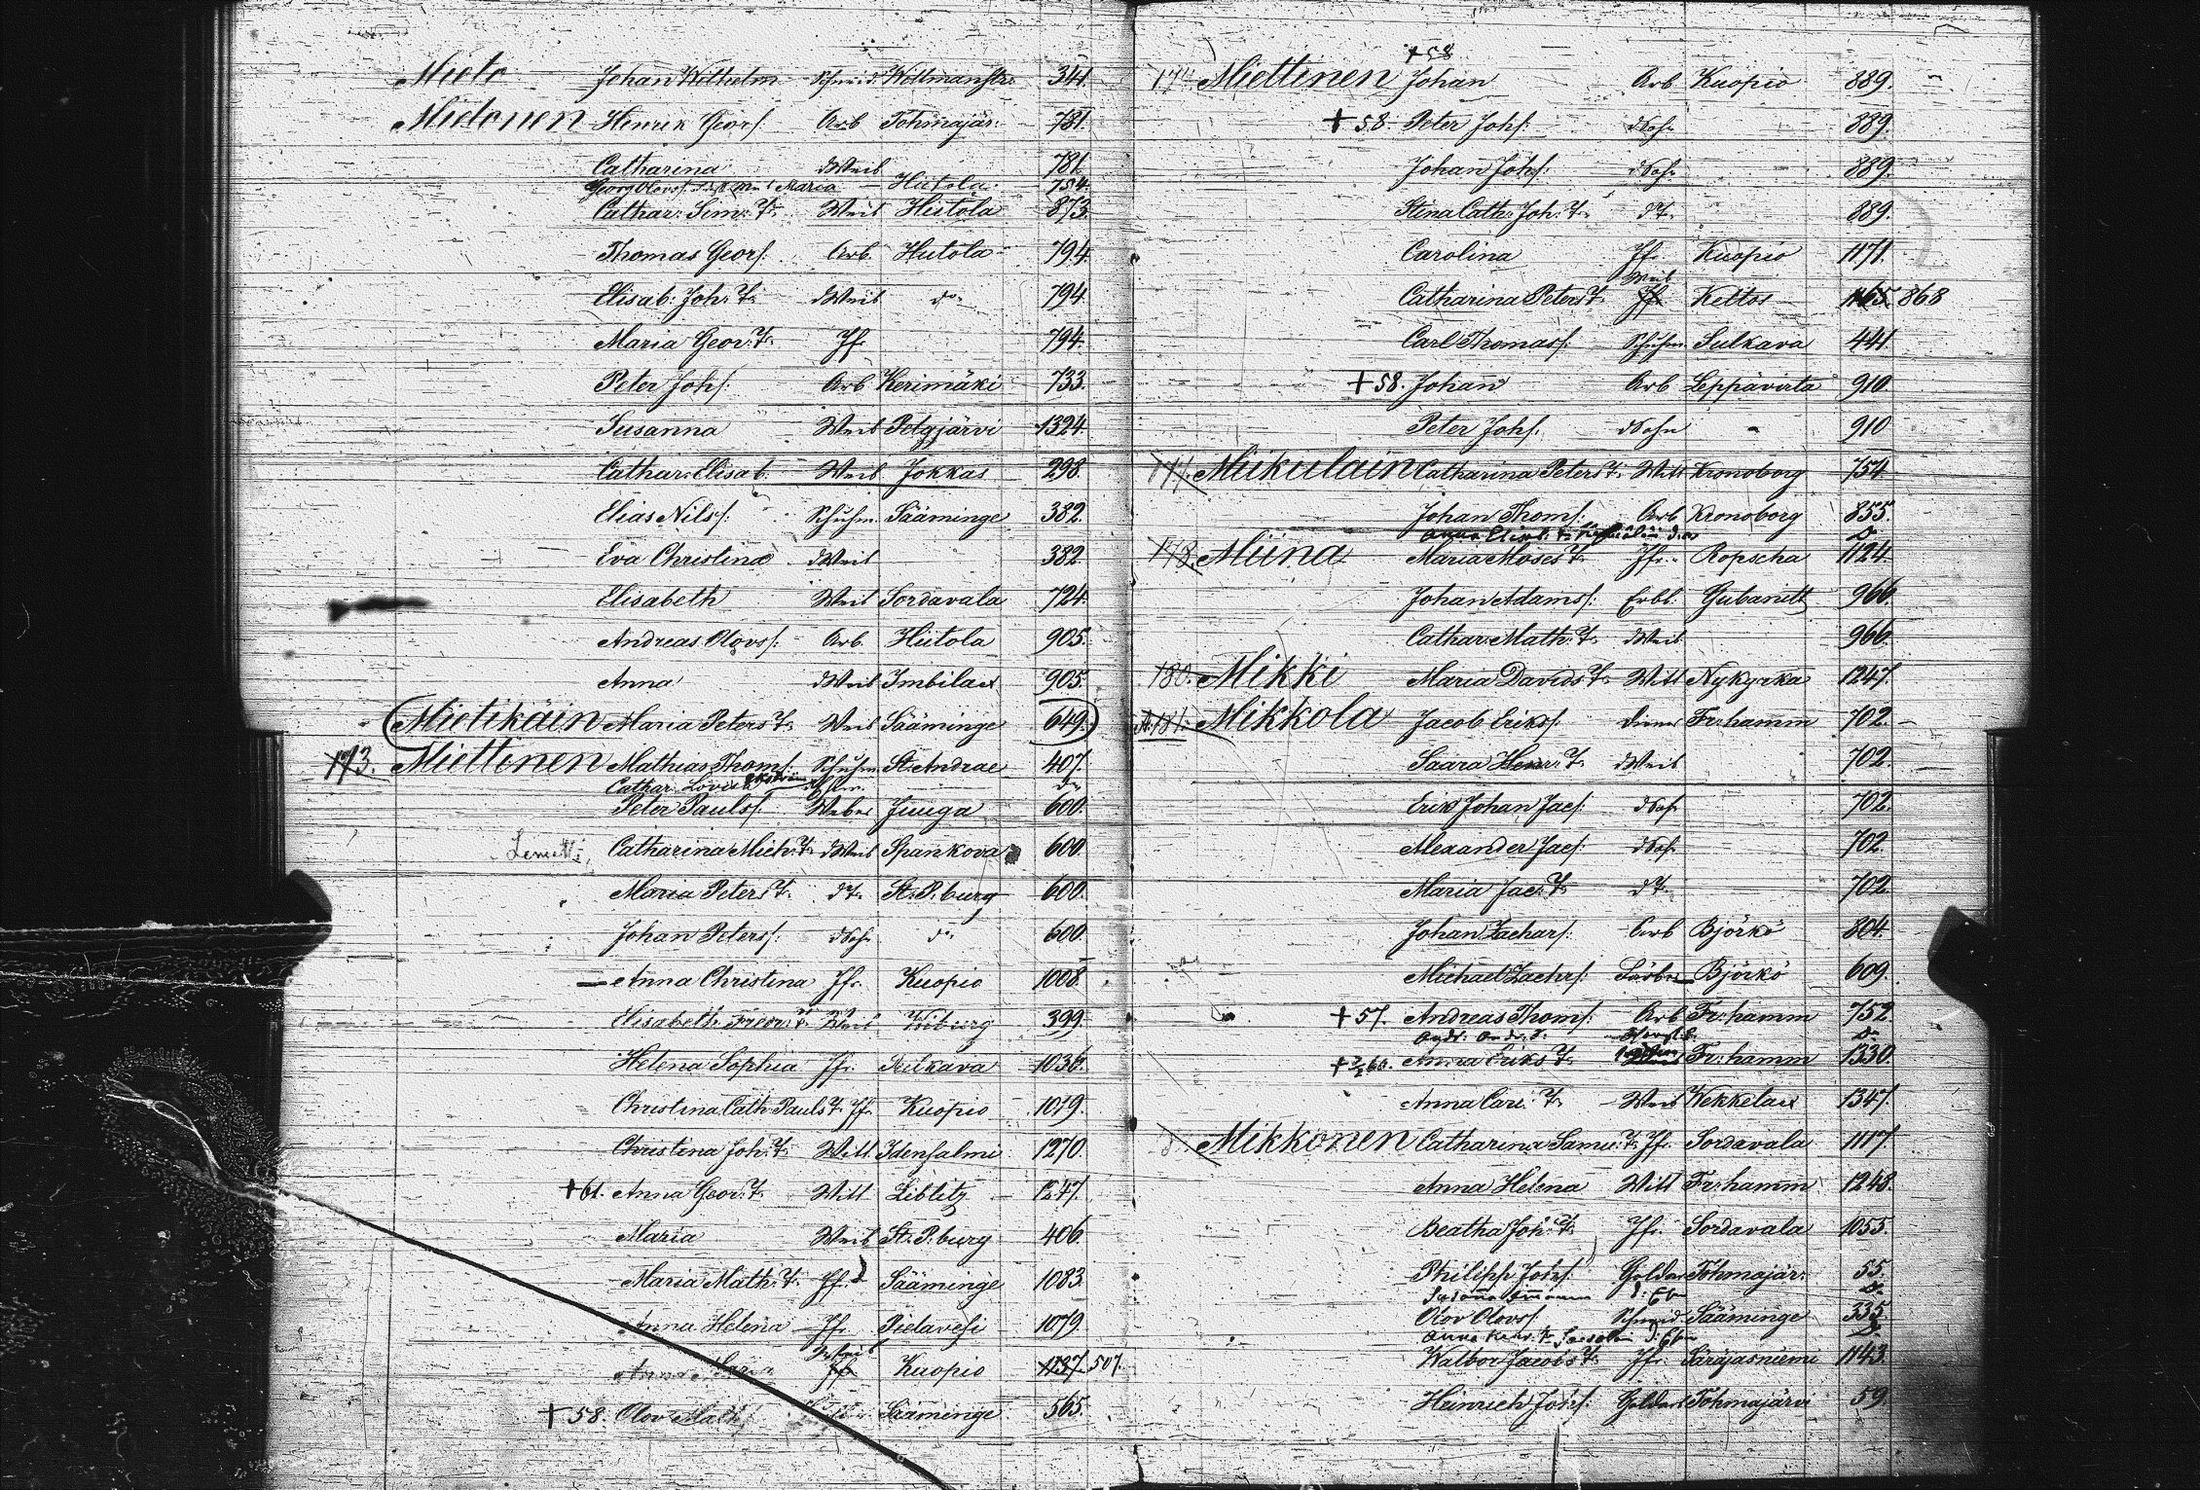 Mieto Johan Wilhelm Schmid. Willmanstr. 341.
Mietonen Henrik Geors. Arb Tohmajär. 781.
Catharina dWeib 781.
Georg Olovs. Maria Hiitola. 754.
Cathar. Sim. T. Weib Hiitola 873.
Thomas Geors. Arb. Hiitola 794.
Elisab. Joh. T. dWeib do 794.
Maria Geor. T. Jf. 794.
Peter Johs. Arb Kerimäki 733.
Susanna Weib Pelgjärvi 1324.
Cathar. Elisab. Weib Jokkas 298.
Elias Nils. Schuhm. Sääminge 382.
Eva Christina dWeib 382.
Elisabeth Weib Sordavala 724.
Andreas Olovs. Arb. Hiitola 905.
Anna dWeib Imbilax 905.
Mietikäin Maria Peters T. Weib Sääminge 649.
173. Miettinen Mathias Thoms. Schuhm. St. Andrae 407.
Cathar. Lovisa do
Peter Pauls. Weber Juuga 600.
Catharina Mich. T. dWeib Spankova 600.
Maria Peters T. dT. St. P.burg 600.
Johan Peters. dSohn do 600.
Anna Christina Jfr. Kuopio 1008.
Elisabeth Fredr. T. Weib Wiburg 399.
Helena Sophia Jfr. Sulkava 1036.
Christina Cath. Pauls T. Jfr. Kuopio 1019.
Christina Joh. T. Witt Idensalmi 1270.
+61. Anna Geor. T. Witt Libelitz 1247.
Maria Weib St. P.burg 406.
Maria Math. T. Jf. Sääminge 1083.
Anna Helena Jfr. Pielavesi 1079.
Anna Maria Jfr Kuopio 1137. 507.
+58. Olov Maths. Sääminge 565.
+58
174. Miettinen Johan Arb Kuopio 889.
+58. Peter Johs. dSohn 889.
Johan Johs. dSohn 889.
Stina Cath. Joh. T. dT. 889.
Carolina Jfr. Kuopio 1171.
Weib
Catharina Peters T. Jfr. Keltos 1165. 868
Carl Thomass. Schuhm. Sulkava 441.
+58. Johan Arb Leppävirta 910.
Peter Johs. dSohn 910
177. Miikulain Catharina Peters T. Witt Kronoborg 754.
Johan Thoms. Arb Kronoborg 855.
178. Miina Maria Moses T. Jfr. Ropscha 1124.
Johan Adams. Erbl. Gubanitz 966.
Cathar. Math. T. dWeib 966.
180. Mikki Maria Davids T. Witt Nykyrka 1247.
181. Mikkola Jacob Eriks. Diener Fr:hamm 702.
Saara Henr. T. dWeib 702.
Erik Johan Jacs. dSohn 702.
Alexander Jacs. dSohn 702.
Maria Jac. T. dT. 702.
Johan Zachars. Arb Björkö 804.
Michael Zachrs. Färber Björkö 609.
+57. Andreas Thoms. Arb Fr:hamm 752.
Anna Eriks T. Fr:hamm 1330.
Anna Carl. T. Weib Wekkelax 1347.
Mikkonen Catharina Samu. T. Jfr. Sordavala 1117.
Anna Helena Witt Fr:hamm 1248.
Beatha Joh. T. Jfr. Sordavala 1055.
Philipp Johs. Goldarb Tohmajär. 55.
Olov Olovs. Schmid Sääminge 335.
Walbor Jacobs T. Jfr. Säräjasniemi 1143.
Heinrich Johs. Goldarb Tohmajärvi 59.